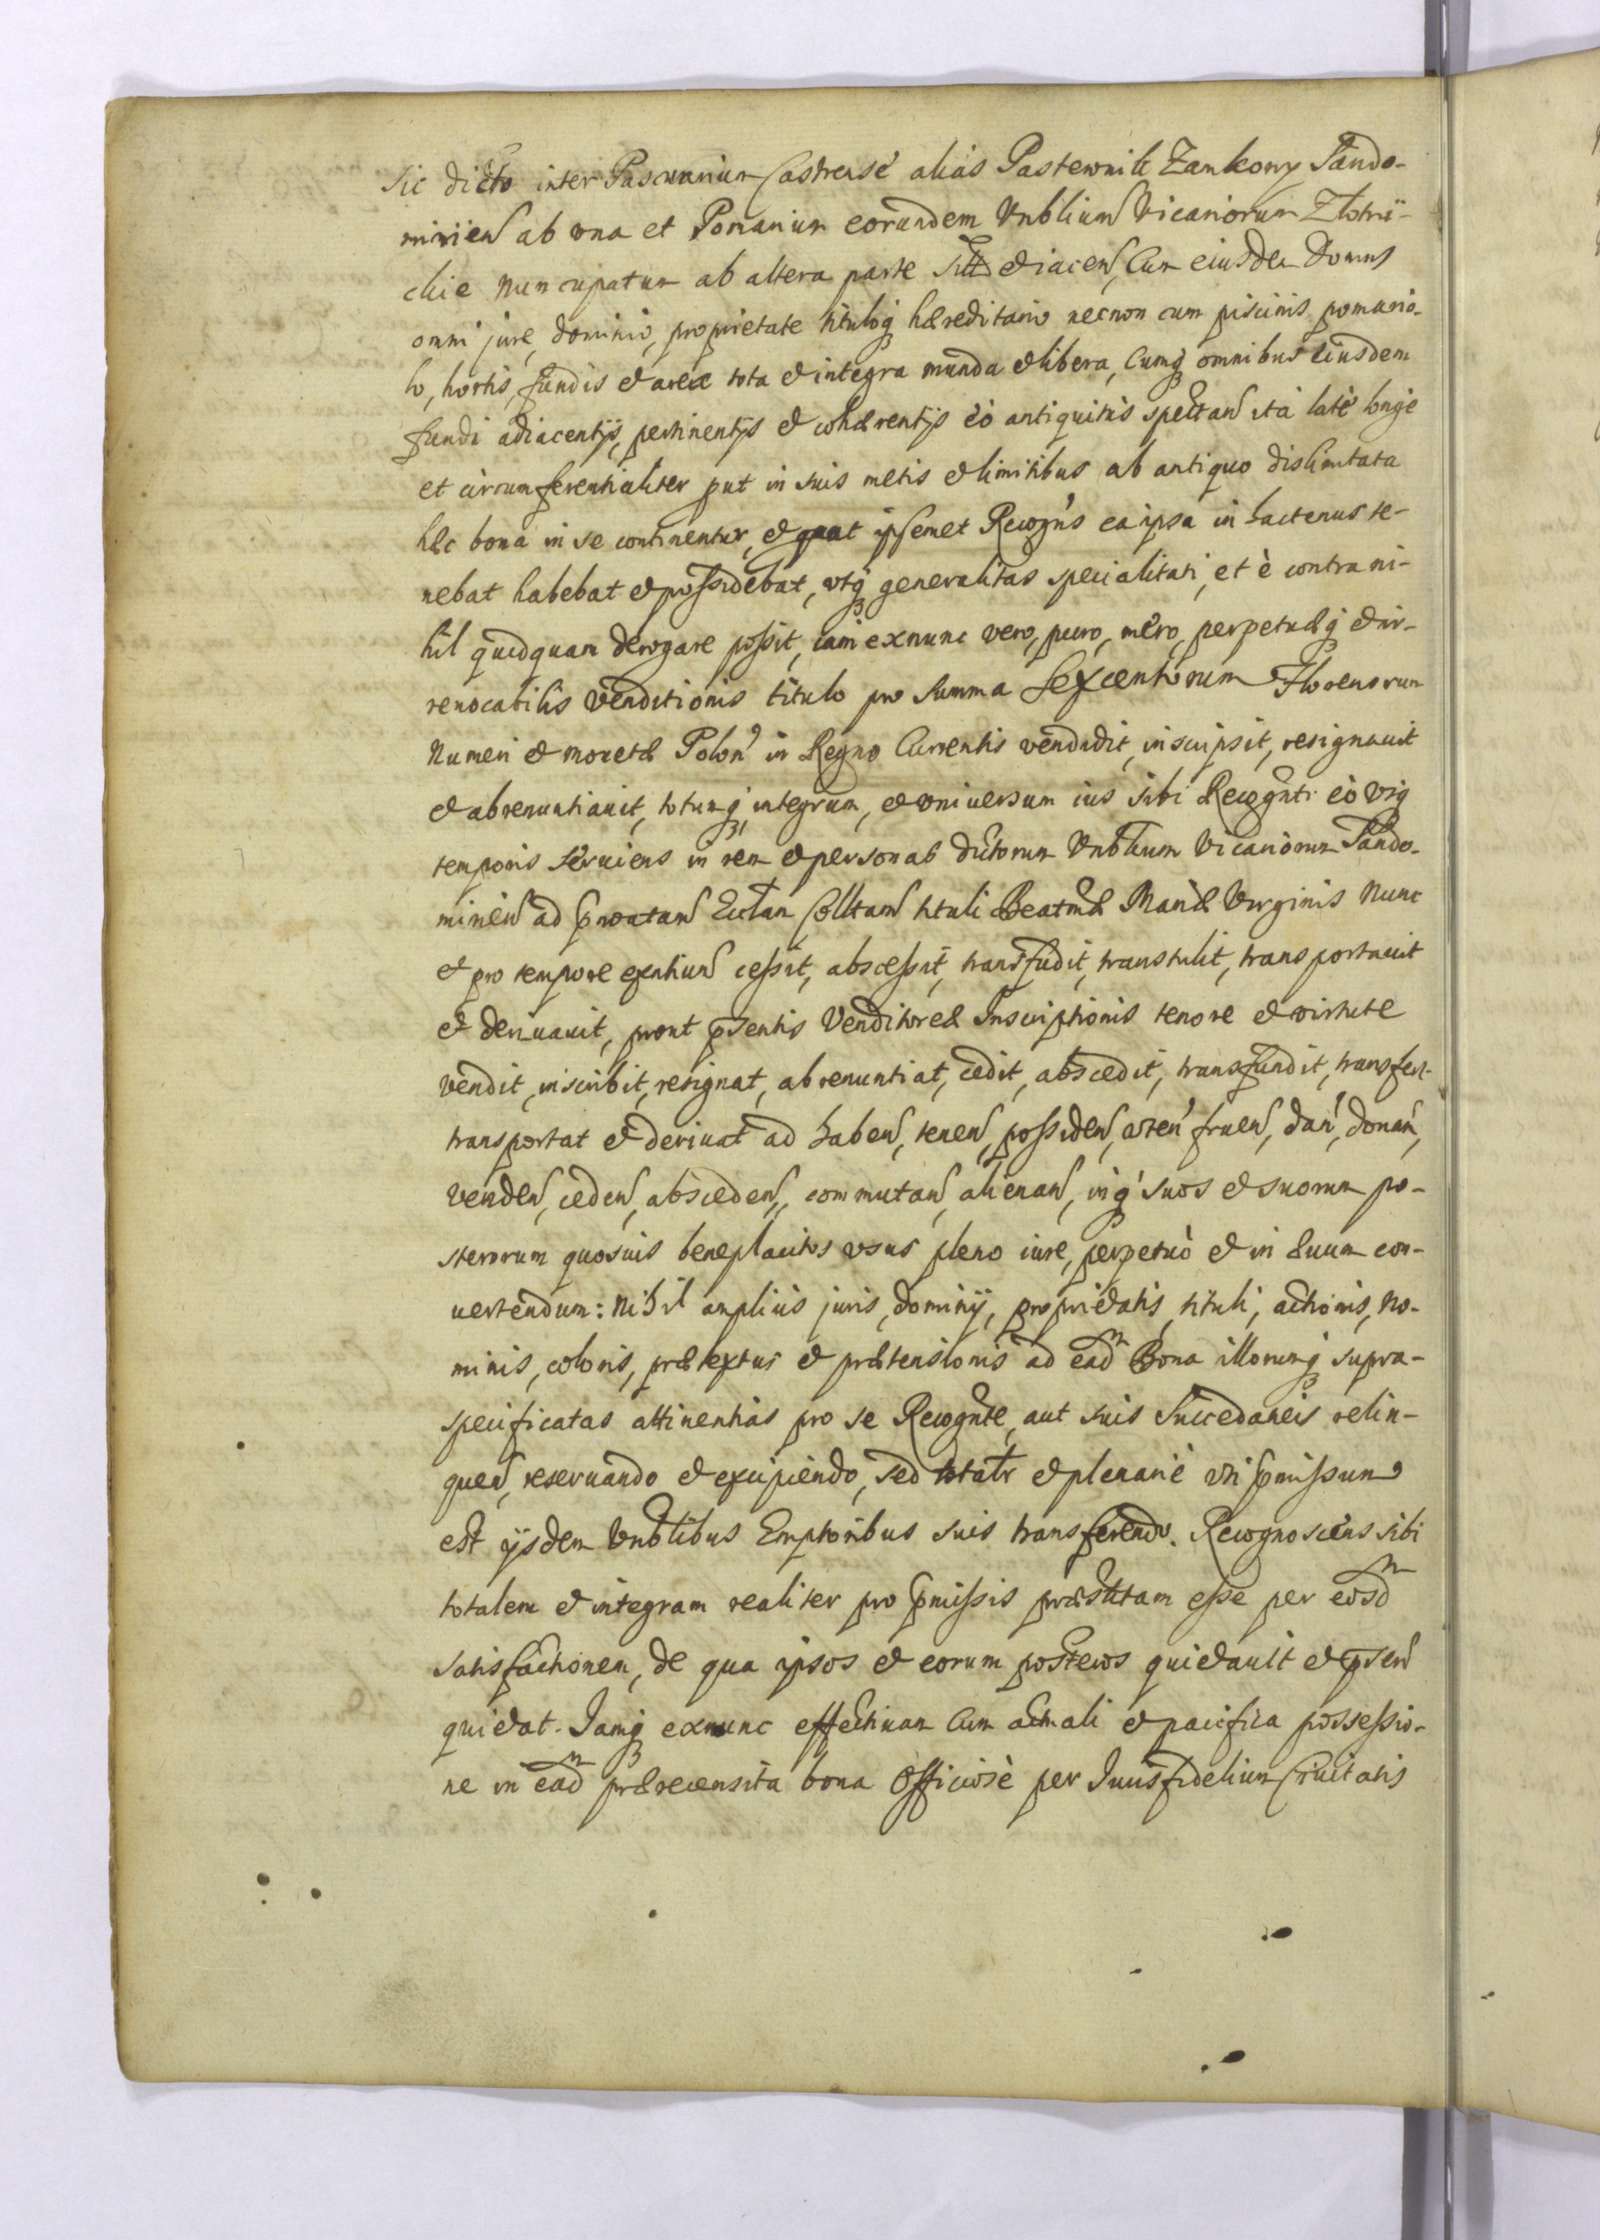 sic dicto inter Pascuarium Castrense alias Pastewnik Zamkowy Sando-
mirien ab una et Pomarium eorundem Vnblium Vicariorum
nuncupatum ab altera parte sitt et iacen, Cum eiusdem Domus
omni jure, dominio, proprietate tituloq hæreditario necnon cum piscinis pomario-
lo, hortis, fundis et area tota et integra munda et libera, Cumq omnibus eiusdem
fundi adiacentijs, pertinentijs et cohærentijs eò antiquitùs spectan ità latè longè
et circumferentialiter put in suis metis et limitibus ab antiquo dislimitata
hæc bona in se continentur, et ipsemet Recogns ea ipsa in hactenus te-
nebat habebat et possidebat, vtq generalitas specialitati, et è contra ni-
hil quidquam derogare possit, iam exnunc vero, puro, mero, perpetuæq et ir-
reuocabilis venditionis titulo pro summa Sexcentorum Florenorum
Numeri et monetæ Polon in Regno Currentis vendidit, inscripsit, resignauit
et abrenuntiauit, totumq, integrum, et vniuersum ius sibi Recognti eò vsq
temporis seruiens in rem et personas dictorum Vnblium Vicariorum Sando-
mirien ad pnoatam Ecclam Colltam tituli Beatmæ Mariæ Virginis nunc
et pro tempore exntium cessit, abscessit, transfudit, transtulit, transportauit
et deriuauit, prout psentis Venditoreæ Inscriptionis tenore et virtute
vendit, inscribit, resignat, abrenuntiat, cedit, abscedit, transfundit, transfert
transportat et deriuat ad haben, tenen, possiden, vten fruen, dan, donan,
venden, ceden, absceden, commutan, alienan, inq suos et suorum po-
sterorum quosuis beneplacitos vsus pleno iure, perpetuò et in æuum con-
uertendum: nihil amplius juris, dominij, proprietatis, tituli, actionis, no-
minis, coloris, prætextus et prætensionis ad eadm Bona illorumq supra-
specificatas attinentias pro se Recognte, aut suis Succedaneis relin-
quen, reseruando et excipiendo, sed totalr et plenariè vti pmissum
est ijsdem Vnblibus Emptoribus suis transferendo. Recognoscens sibi
totalem et integram realiter pro pmissis præstitam esse per eosdm
satisfactionem, de qua ipsos et eorum posteros quietauit et psen
quietat. Iamq exnunc effectiuam Cum actuali et pacifica possessio-
ne in eadm prærecensita bona Officiosè per Iuusfidelium Ciuitatis